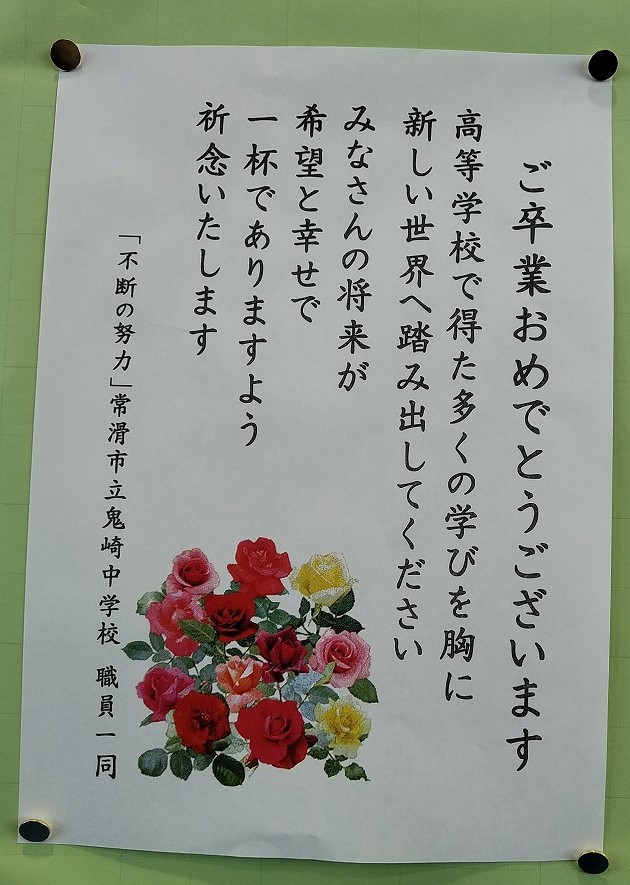 ご卒業おめでとうございます
高等学校で得た多くの学びを胸に
新しい世界へ踏み出してください
みなさんの将来が
希望と幸せで
一杯でありますよう
祈念いたします
「不断の努力」常滑市立鬼崎中学校 職員一同